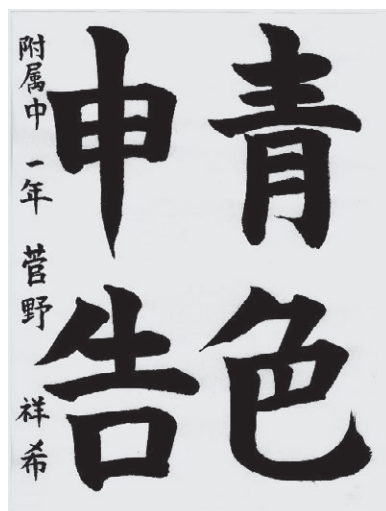 青色
申告
附属中 一年 菅野 祥希